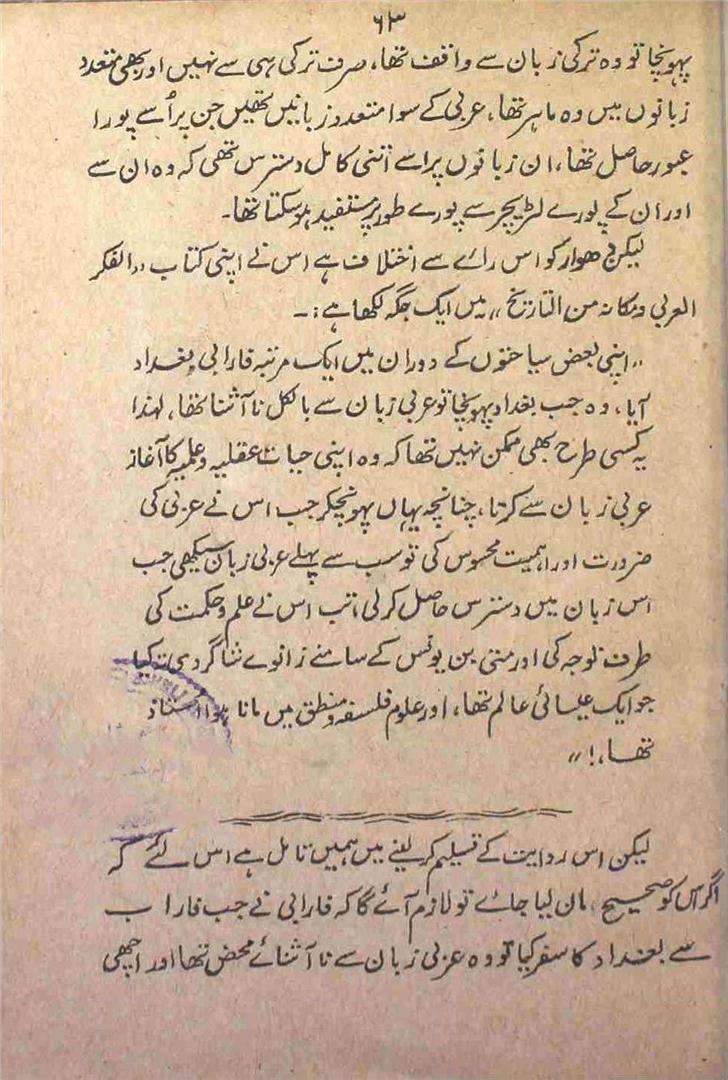 ۶۳
پہونچا تو وہ ترکی زبان سے واقف تھا، صرف ترکی ہی سے نہیں اور بھی متعدد
زبانوں میں وہ ماہر تھا، عربی کے سوا متعدد زبانیں تھیں جن پر اُسے پورا
عبور حاصل تھا، ان زبانوں پر اسے اتنی کامل دسترس تھی کہ وہ ان سے
اور ان کے پورے لٹریچر سے پورے طور پر مستفید ہو سکتا تھا۔
لیکن ھوار کو اس رائے سے اختلاف ہے اس نے اپنی کتاب ،،الفکر
العربی و مکانہ من التاریخ ،، میں ایک جگہ لکھا ہے :۔
،، اپنی بعض سیاحتوں کے دوران میں ایک مرتبہ فارابی بغداد
آیا، وہ جب بغداد پہونچا تو عربی زبان سے بالکل نا آشنا تھا، لہٰذا
یہ کسی طرح بھی ممکن نہیں تھا کہ وہ اپنی حیات عقلیہ و علمیہ کا آغاز
عربی زبان سے کرتا، چنانچہ یہاں پہونچکر جب اس نے عربی کی
ضرورت اور اہمیت محسوس کی تو سب سے پہلے عربی زبان سیکھی جب
اس زبان میں دسترس حاصل کر لی، تب اس نے علم و حکمت کی
طرف توجہ کی اور متی بن یونس کے سامنے زانوے شاگردی تہ کیا
جو ایک عیسائی عالم تھا، اور علوم فلسفہ و منطق میں مانا ہوا استاذ
تھا،! ،،
لیکن اس روایت کے تسلیم کر لینے میں ہمیں تامل ہے اس لئے کہ
اگر اس کو صحیح مان لیا جائے تو لازم آئے گا کہ فارابی نے جب فاراب
سے بغداد کا سفر کیا تو وہ عربی زبان سے نا آشنائے محض تھا اور اچھی